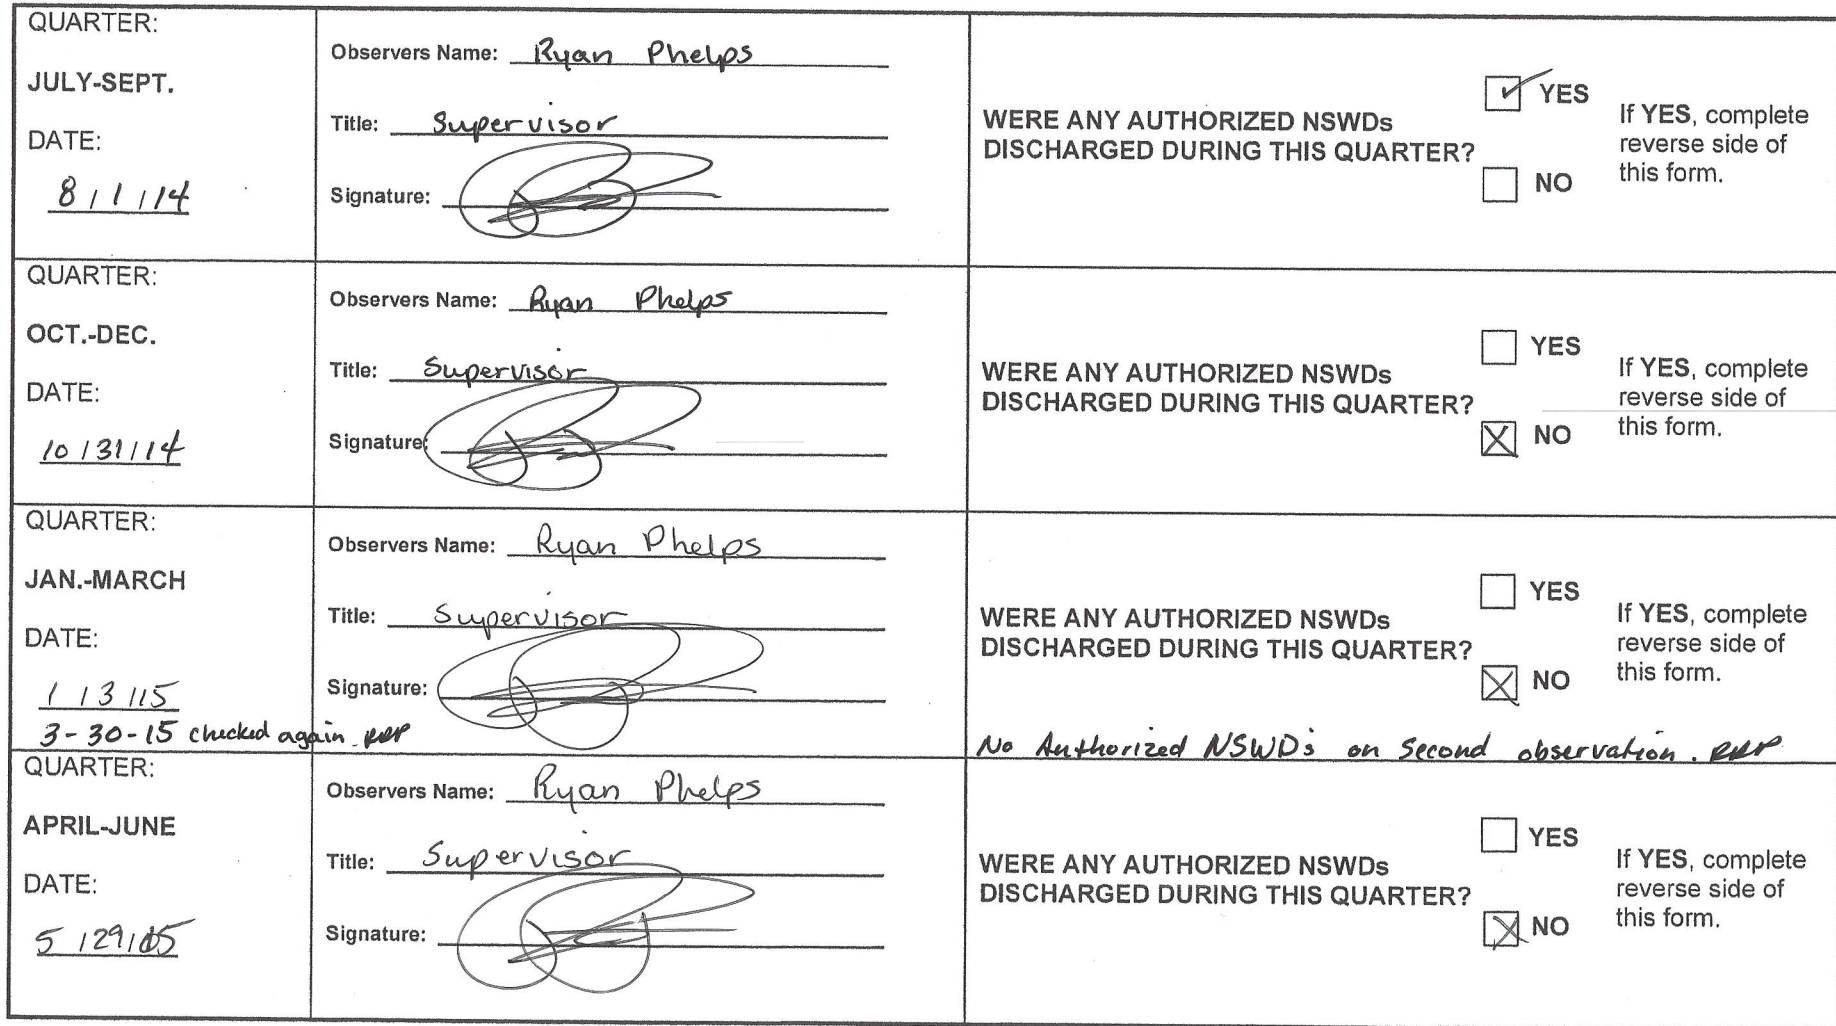 QUARTER:
JULY-SEPT.
DATE:
8/1/14
Observers Name: Ryan Phelps
Title: Supervisor
Signature:
WERE ANY AUTHORIZED NSWDs
DISCHARGED DURING THIS QUARTER?
YES
NO
If YES, complete
reverse side of
this form.
QUARTER:
OCT.-DEC.
DATE:
10/31/14
Observers Name: Ryan Phelps
Title: Supervisor
Signature:
WERE ANY AUTHORIZED NSWDs
DISCHARGED DURING THIS QUARTER?
YES
NO
If YES, complete
reverse side of
this form.
QUARTER:
JAN.-MARCH
DATE:
1/3/15
3-30-15 checked again. RRP
Observers Name: Ryan Phelps
Title: Supervisor
Signature:
WERE ANY AUTHORIZED NSWDs
DISCHARGED DURING THIS QUARTER?
YES
NO
If YES, complete
reverse side of
this form.
No Authorized NSWDs on Second observation. RRP
QUARTER:
APRIL-JUNE
DATE:
5/29/15
Observers Name: Ryan Phelps
Title: Supervisor
Signature:
WERE ANY AUTHORIZED NSWDs
DISCHARGED DURING THIS QUARTER?
YES
NO
If YES, complete
reverse side of
this form.